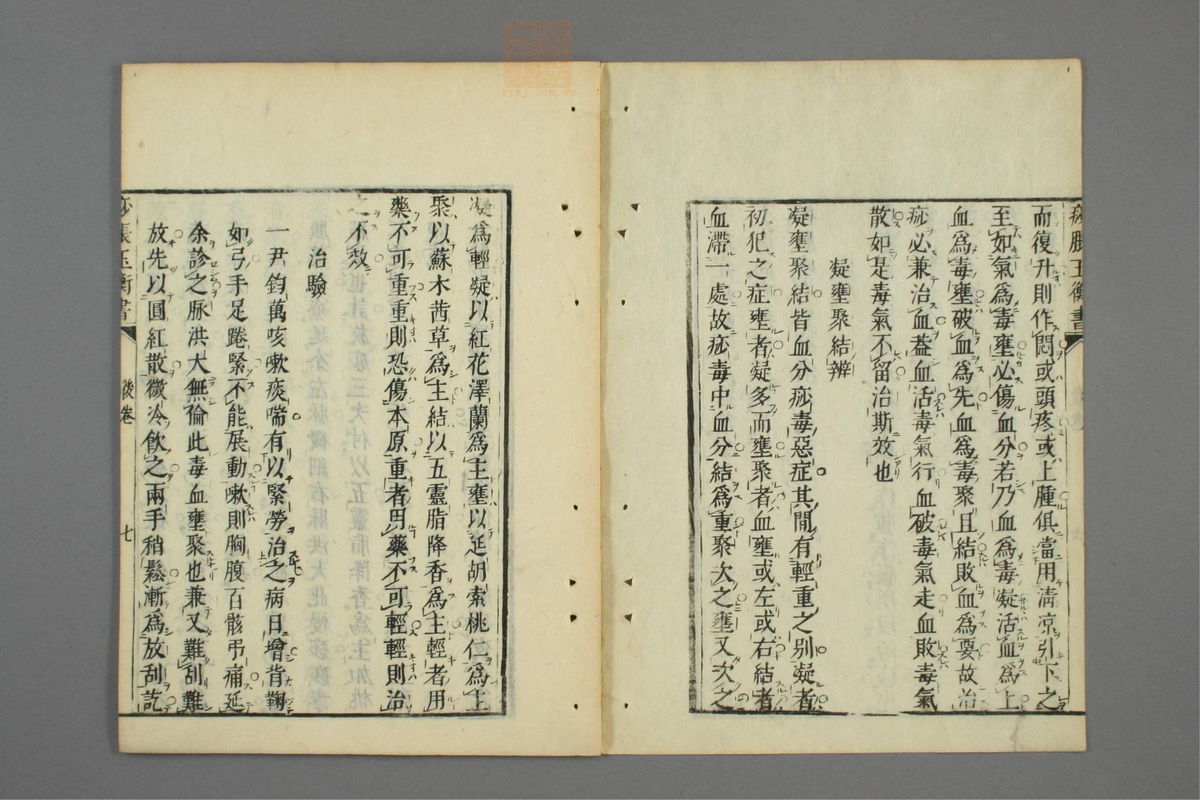 痧脹玉衡書
而復升則作悶或頭疼或上腫俱當用淸凉引下之
至如氣爲毒壅必傷血分若乃血爲毒凝活血爲上
血爲毒壅破血爲先血爲毒聚且結敗血爲要故治
痧必兼治血益血活毒氣行血破毒氣走血敗毒氣
散如是毒氣不留治斯效也
凝壅聚結辨
凝壅聚結皆血分痧毒惡症其閒有輕重之別凝者
初犯之症壅者凝多而壅聚者血壅或左或右結者
血滯一處故痧毒中血分結爲重聚次之壅又次之
凝爲輕凝以紅花澤蘭爲主壅以延胡索桃仁爲上
聚以蘇木茜草爲主結以五靈脂降香爲主輕者用
藥不可重重則恐傷本原重者用藥不可輕輕則治
之不效
治驗
一尹鈞萬咳嗽痰喘有以緊勞治之病日增背鞠
如弓手足踡緊不能展動嗽則胸腹百骸弔痛延
余診之脉洪大無倫此毒血壅聚也兼又難刮難
放先以圓紅散微冷飮之兩手稍鬆漸爲放刮訖
痧脹玉衡書
後卷
七